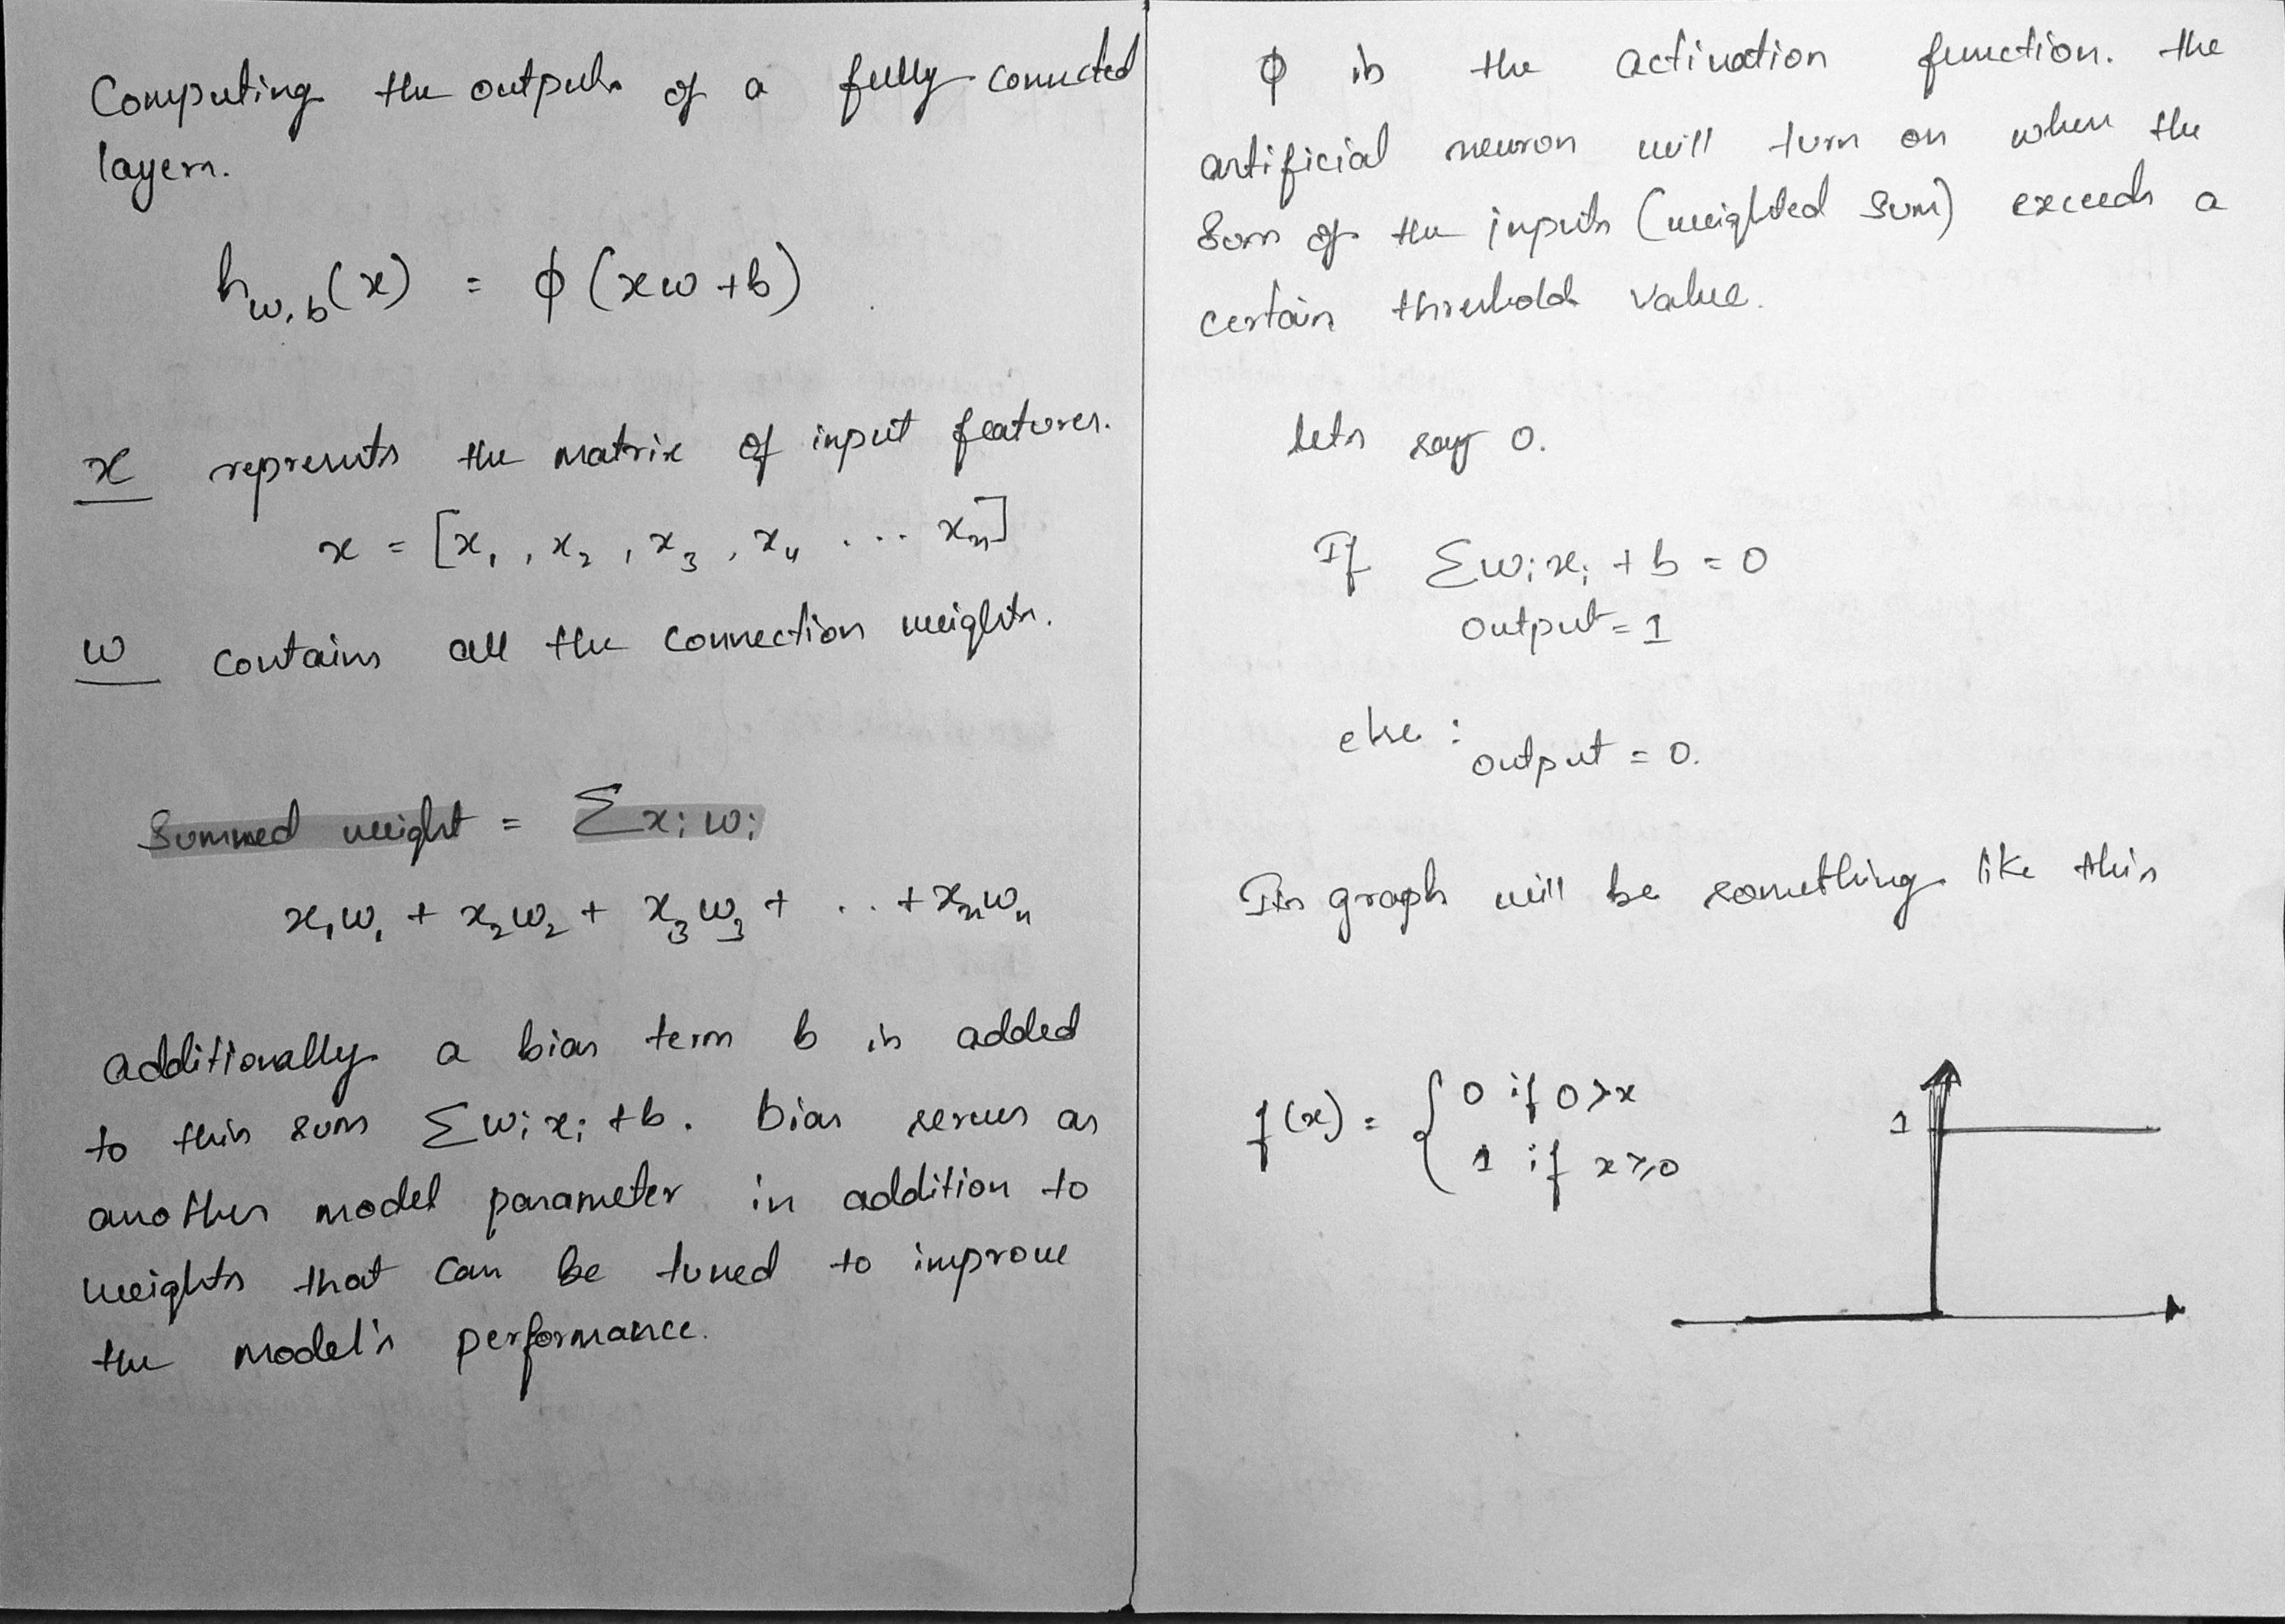 Computing the outputs of a fully connected
layers.
h_{w,b}(x) = ϕ (xw + b)
x represents the matrix of input features.
x = [x₁, x₂, x₃, x₄ ... xₙ]
w contains all the connection weights.
Summed weight = Σ xᵢ wᵢ
x₁w₁ + x₂w₂ + x₃w₃ + .. + xₙwₙ
additionally a bias term b is added
to this sum Σ wᵢ xᵢ + b. bias serves as
another model parameter in addition to
weights that can be tuned to improve
the model's performance.
ϕ is the activation function. the
artificial neuron will turn on when the
sum of the inputs (weighted sum) exceeds a
certain threshold value.
lets say 0.
If Σ wᵢ xᵢ + b = 0
output = 1
else :
output = 0.
Its graph will be something like this
f(x) = { 0 if 0 > x
1 if x ≥ 0
1